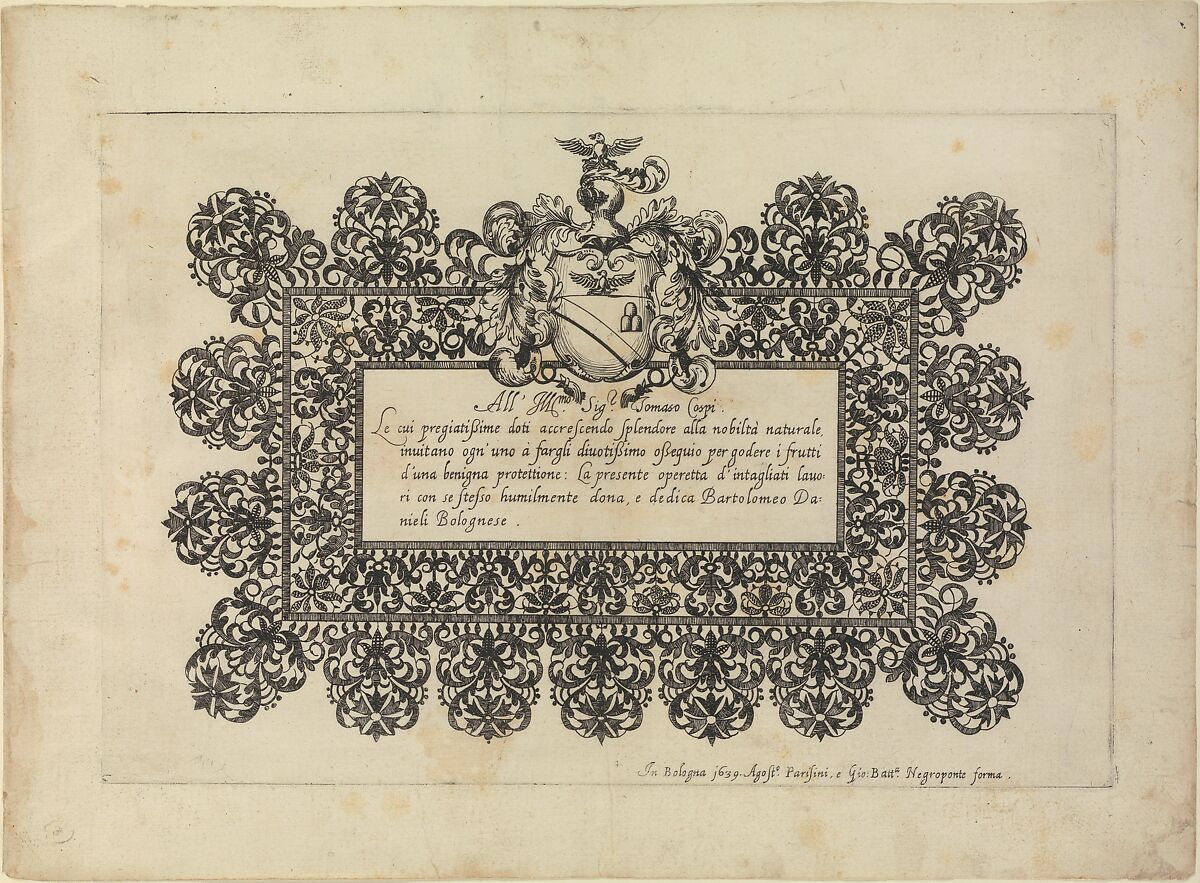 All' Ill.mo Sig.r Tomaso Cospi.
Le cui pregiatißime doti accreſcendo ſplendore alla nobiltà naturale,
inuitano ogn'uno à fargli diuotißimo oßequio per godere i frutti
d'una benigna protettione: La presente operetta d'intagliati lauo:
ri con se ſteſso humilmente dona, e dedica Bartolomeo Da:
nieli Bolognese.
In Bologna 1639. Agoſt.o Pariſini, e Gio: Batt.a Negroponte forma.